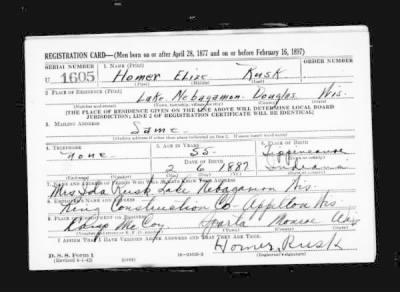 REGISTRATION CARD—(Men born on or after April 28, 1877 and on or before February 16, 1897)
SERIAL NUMBER 1. NAME (Print) ORDER NUMBER
U 1605 Homer Rusk
(First) (Middle) (Last)
2. PLACE OF RESIDENCE (Print)
Lake Nebagamon Douglas Wis.
[THE PLACE OF RESIDENCE GIVEN ON THE LINE ABOVE WILL DETERMINE LOCAL BOARD
JURISDICTION; LINE 2 OF REGISTRATION CERTIFICATE WILL BE IDENTICAL]
3. MAILING ADDRESS
Same
4. TELEPHONE 5. AGE IN YEARS 6. PLACE OF BIRTH
none 55 Tippecanoe
DATE OF BIRTH
2 6 1887 Indiana
7. NAME AND ADDRESS OF PERSON WHO WILL ALWAYS KNOW YOUR ADDRESS
Mrs Ida Rusk Lake Nebagamon Wis
King Construction Co Appleton Wis
Camp McCoy Sparta Monroe Wis
I AFFIRM THAT I HAVE VERIFIED ABOVE ANSWERS AND THAT THEY ARE TRUE.
Homer Rusk
D. S. S. Form 1
(Revised 4-1-42) (over)